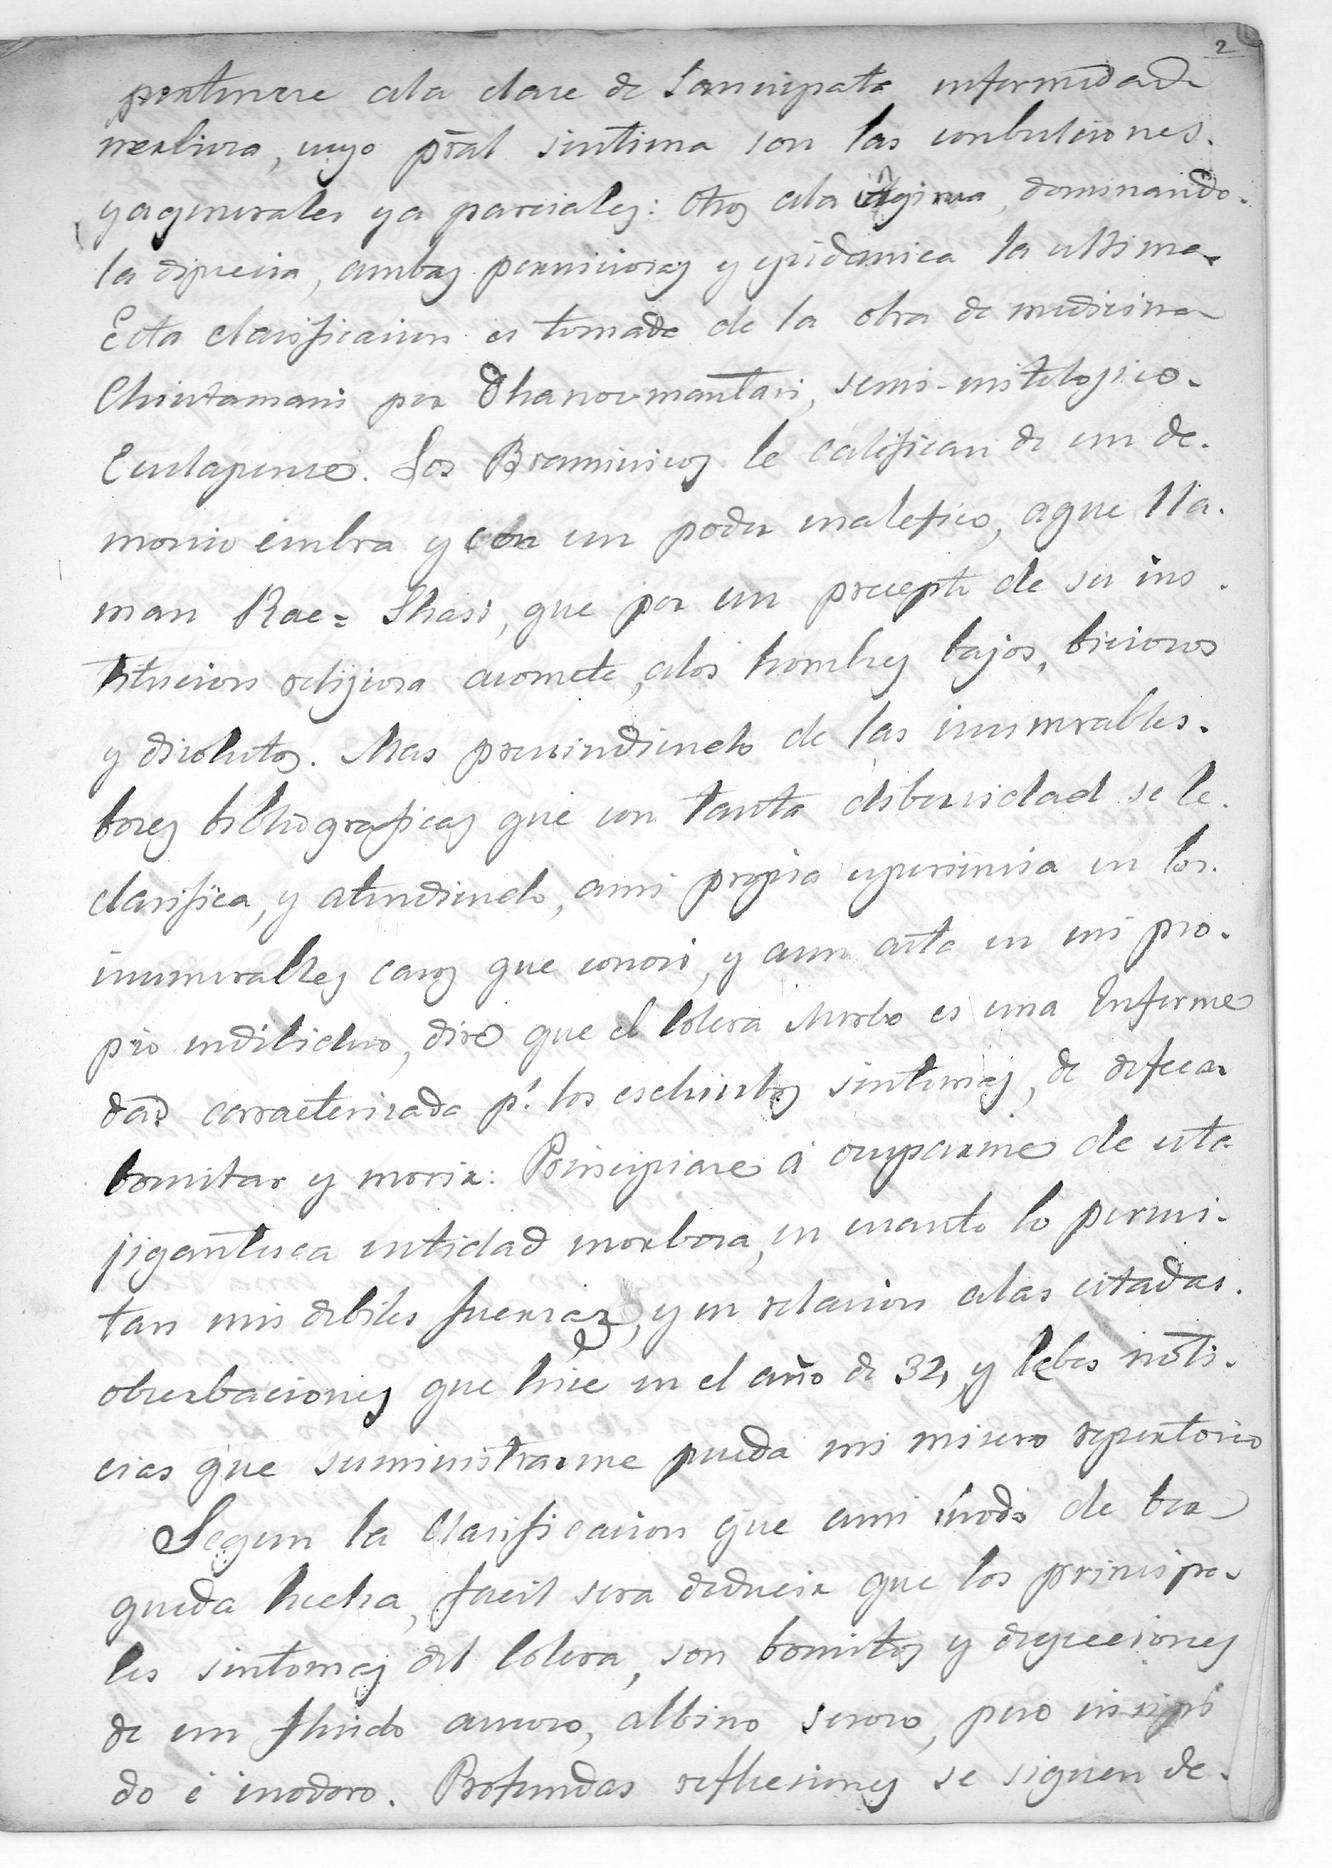 2
pertenece ala clase de Sannipata enfermedade
nerbiosa, cuyo pral sintima son las conbulciones.
ya generales ya parciales: otros ala Agirna, dominando.
la dipecia, ambas perniciosas y epidamica la ultima.
Esta clasificacion es tomada de la obra de medicina
Chintamani por Dhanoumantari, semi-mitologico.
Esculapience. Los Braminicos le califican de un de.
monio embra y con un poder malefico, aque lla.
man Rae= Shasi, que por un precepto de su ins.
titucion religiosa acomete, alos hombres bajos, biciosos
y disolutos. Mas prescindiendo de las inumerables.
bozes bibliograficas que con tanta dibercidad se le.
clasifica, y atendiendo, ami propia esperiencia en los.
inumerables casos que conosi, y aun asta en mi pro.
pio indibiduo, dire que el Colera Morbo es una Enferme
dad carracterizada pr. los eschintos sintomas, de defecar
bomitar y morir: Principiare á ocuparme de esta
jigantesca entidad morbosa, en cuanto lo permi.
tan mis debiles fuerzas, y en relacion alas citadas.
obserbaciones que hice en el año de 32, y lebes noti.
cias que suministrarme pueda mi misero repertorio
Segun la Clasificacion que ami modo de ber
queda hecha, facil sera deducir que los principa.
les sintomas del Colera, son bomitos y deyecciones
de un fluido acuoso, albino seroso, pero insipi
do é inodoro. Profundas reflecciones se siguen de.